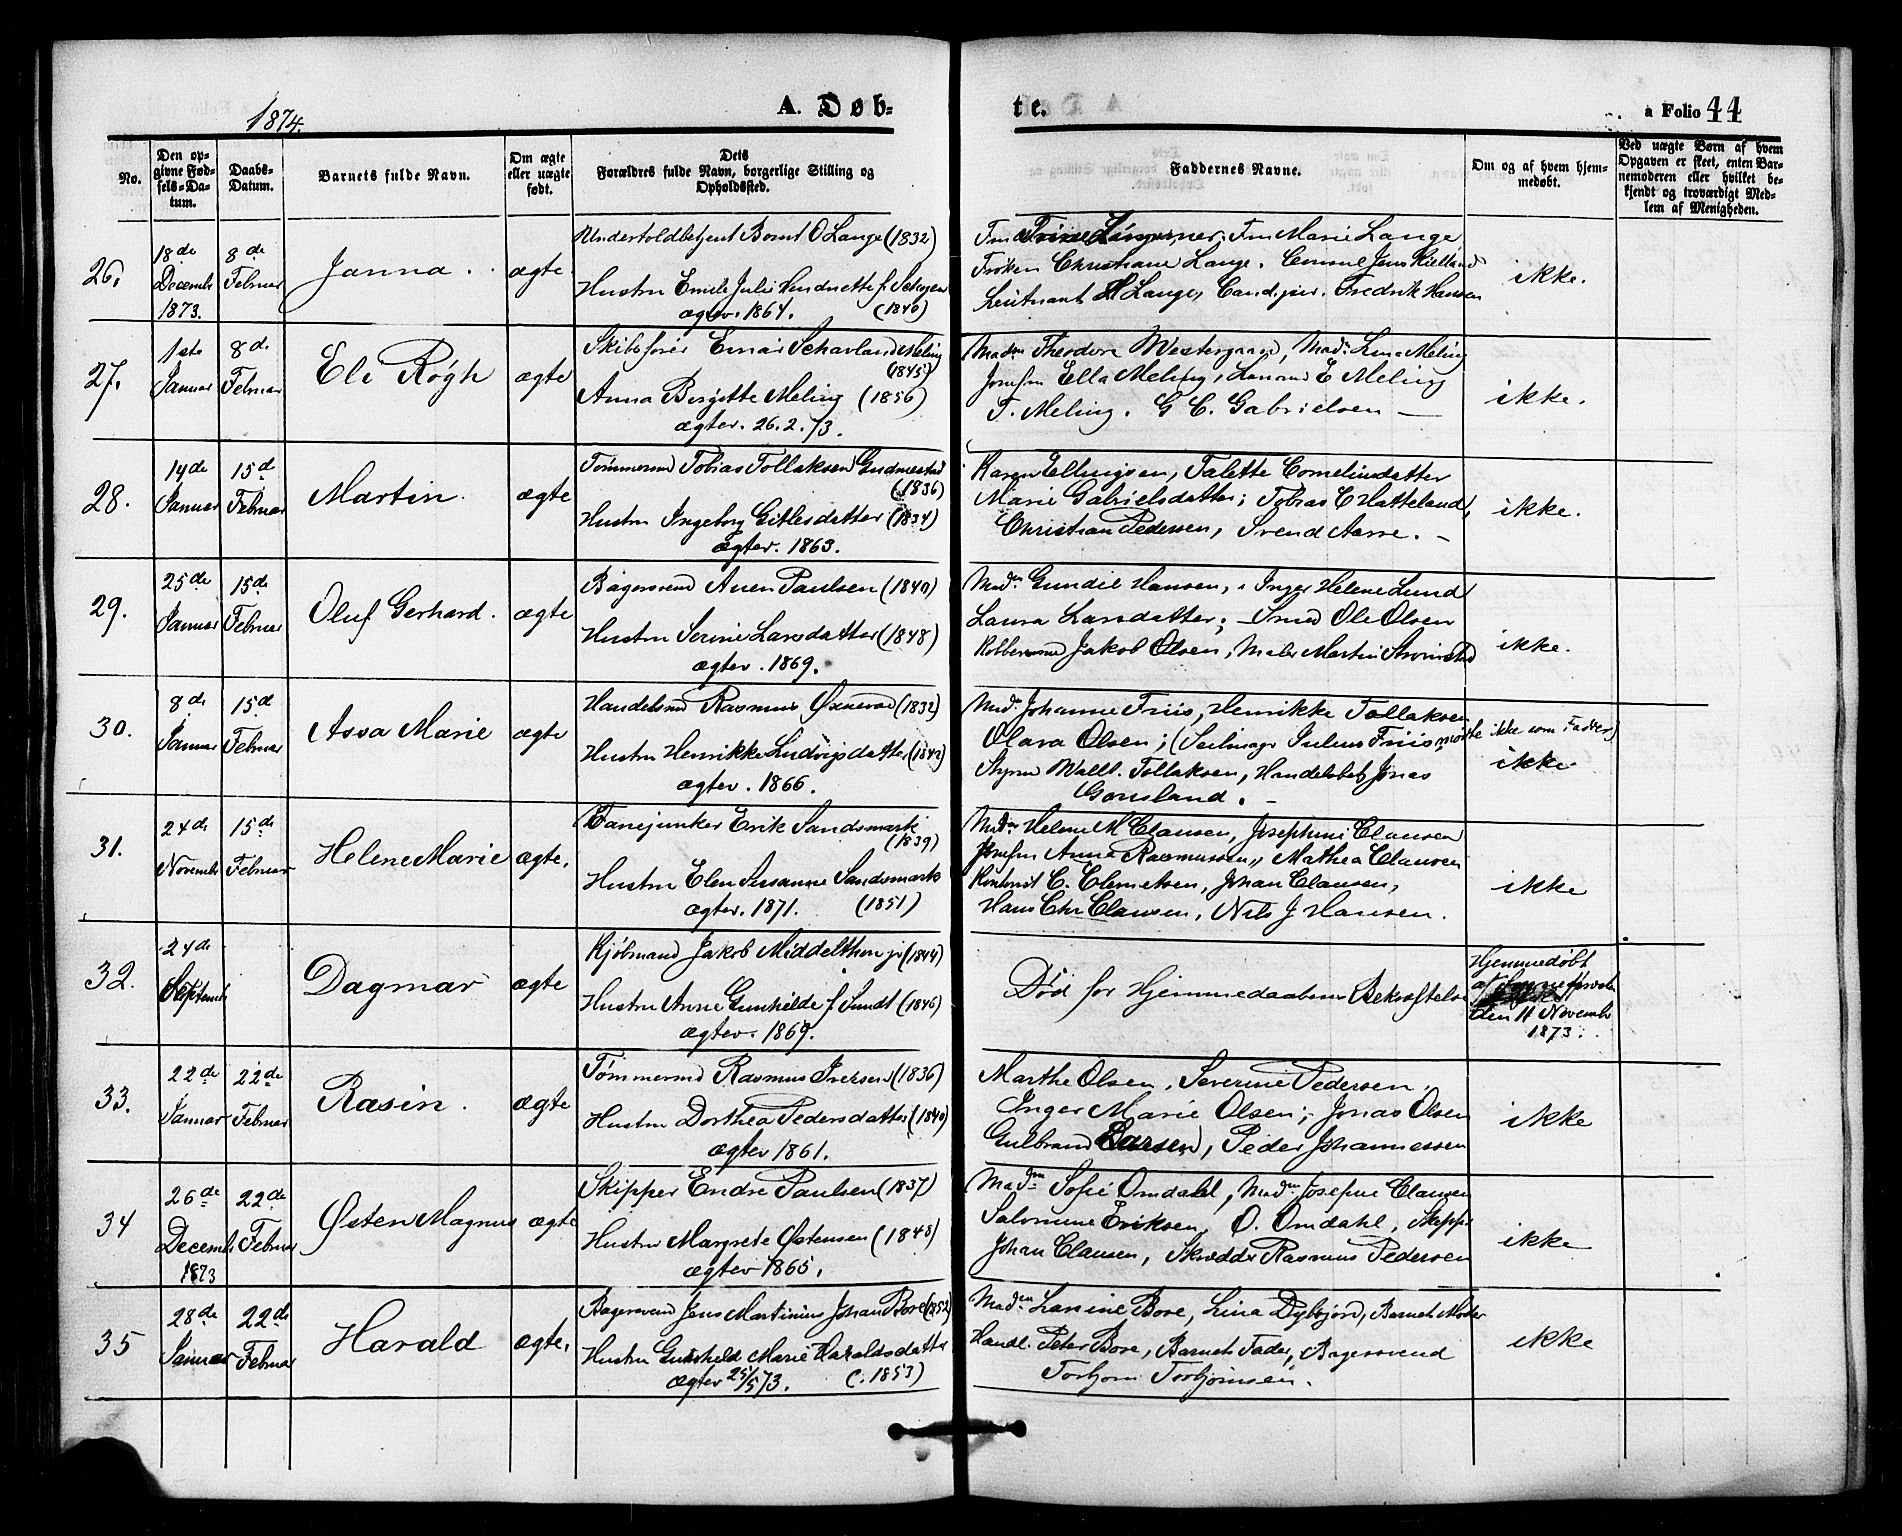 1874.
A. Døb-
te.
a Folio 44
No.
Den op-
givne Fød-
sels-Da-
tum.
Daabs-
Datum.
Barnets fulde Navn.
Om ægte
eller uægte
født.
Dets
Forældres fulde Navn, borgerlige Stilling og
Opholdssted.
Faddernes Navne.
Om og af hvem hjem-
medøbt.
Ved uægte Børn af hvem
Opgaven er skeet, enten Bar-
nemoderen eller hvilket be-
kjendt og troværdigt Med-
lem af Menigheden.
26.
18de
Decemb
1873.
8de
Februar
Janna.
ægte
Undertoldbetjent Bernt O Lange (1832)
Hustru Emile Julie Hendriette f.
ægtev. 1864. (1840)
Fru Marie Lange
Frøken Christiane Lange. Consul Jens Kielland
Lieutnant H Lange, Cand. jur. Fredrik Hansen
ikke.
27.
1ste
Januar
8de
Februar
Eli Røgh
ægte
Skibsfører Einar Scharland Meling
(1845)
Anna Birgitte Meling (1856)
ægtev. 26.2.73.
Madm Theodora Westergaard, Madm Lina Meling
Jomfru Ella Meling, E Meling
T. Meling. G C. Gabrielsen —
ikke.
28.
14de
Januar
15d
Februar
Martin.
ægte
Tømmermd Tobias Tollaksen Gudmestad
(1836)
Hustru Ingeborg Gitlesdatter (1834)
Ægtev. 1863.
Karen Ellingsen, Talette Corneliusdatter
Marie Gabrielsdatter; Tobias C Hatteland,
Christian Pedersen, Svend Aarre. —
ikke.
29.
25de
Januar
15de
Februar
Oluf Gerhard.
ægte
Bagersvend Aven Paulsen (1840)
Hustru Serine Larsdatter (1848)
ægtev. 1869.
Madm Gundil Hansen, Inger Helene Lund
Laura Larsdatter; Smed Ole Olsen
Jakob Olsen, Maler Martin
ikke.
30.
8de
Januar
15d
Februar
Assa Marie
ægte
Handelsmd Rasmus Øxnevad (1832)
Hustru Henrikke Ludvigsdatter (1842)
ægtev. 1866.
Madm Johanne Friis, Henrikke Tollaksen
Olava Olsen; (Seilmager Julius Friis mødte ikke som Fadder)
Styrm Wall. Tollaksen, Handelsbetj Jonas
Gousland. —
ikke
31.
24de
Novemb
15de
Februar
Helene Marie
ægte.
Fanejunker Erik Sandsmark
(1839)
Hustru Elen Susanne Sandsmark
ægtev. 1871. (1851)
Madm Helene M Clausen, Josephine Clausen
Jomfru Anne Rasmussen, Mathea Clausen
Kontorist C. Clemetsen, Johan Clausen,
Hans Chr Clausen, Nils J Hansen.
ikke
32.
24de
Septemb
Dagmar
ægte
Kjøbmand Jakob Middelthon jr (1844)
Hustru Anne Gunhilde f. Sundt (1846)
ægtev. 1869.
Død før Hjemmedaabens Bekræftelse
Hjemmedøbt
af
den 11 Novemb
1873.
33.
22de
Januar
22de
Februar
Rasin.
ægte
Tømmermd Rasmus Iversen (1836)
Hustru Dorthea Pedersdatter (1840)
ægtev 1861.
Marthe Olsen, Severine Pedersen.
Inger Marie Olsen; Jonas Olsen
Gulbrand Larsen, Peder Johannessen
ikke
34
26de
Decemb
1873
22de
Februar
Østen Magnus
ægte
Skipper Endre Paulsen (1837)
Hustru Margrete Østensen (1840)
ægtev 1865.
Madm Sofie Omdahl, Madm Josefine Clausen
Salomine Eriksen, O. Omdahl, Skipper
Johan Clausen, Skrædder Rasmus Pedersen
ikke
35
28de
Januar
22de
Februar
Harald
ægte.
Bagersvend Jens Martinius Johan Bore (1852)
Hustru Gunhild Marie Haraldsdatter
Ægtev 25/5 73. (1853)
Madm Larsine Bore, Lina Dybfjord, Barnets Moder
Handl. Peter Bore, Barnets Fader, Bagersvend
Torbjørn Torbjørnsen.
ikke